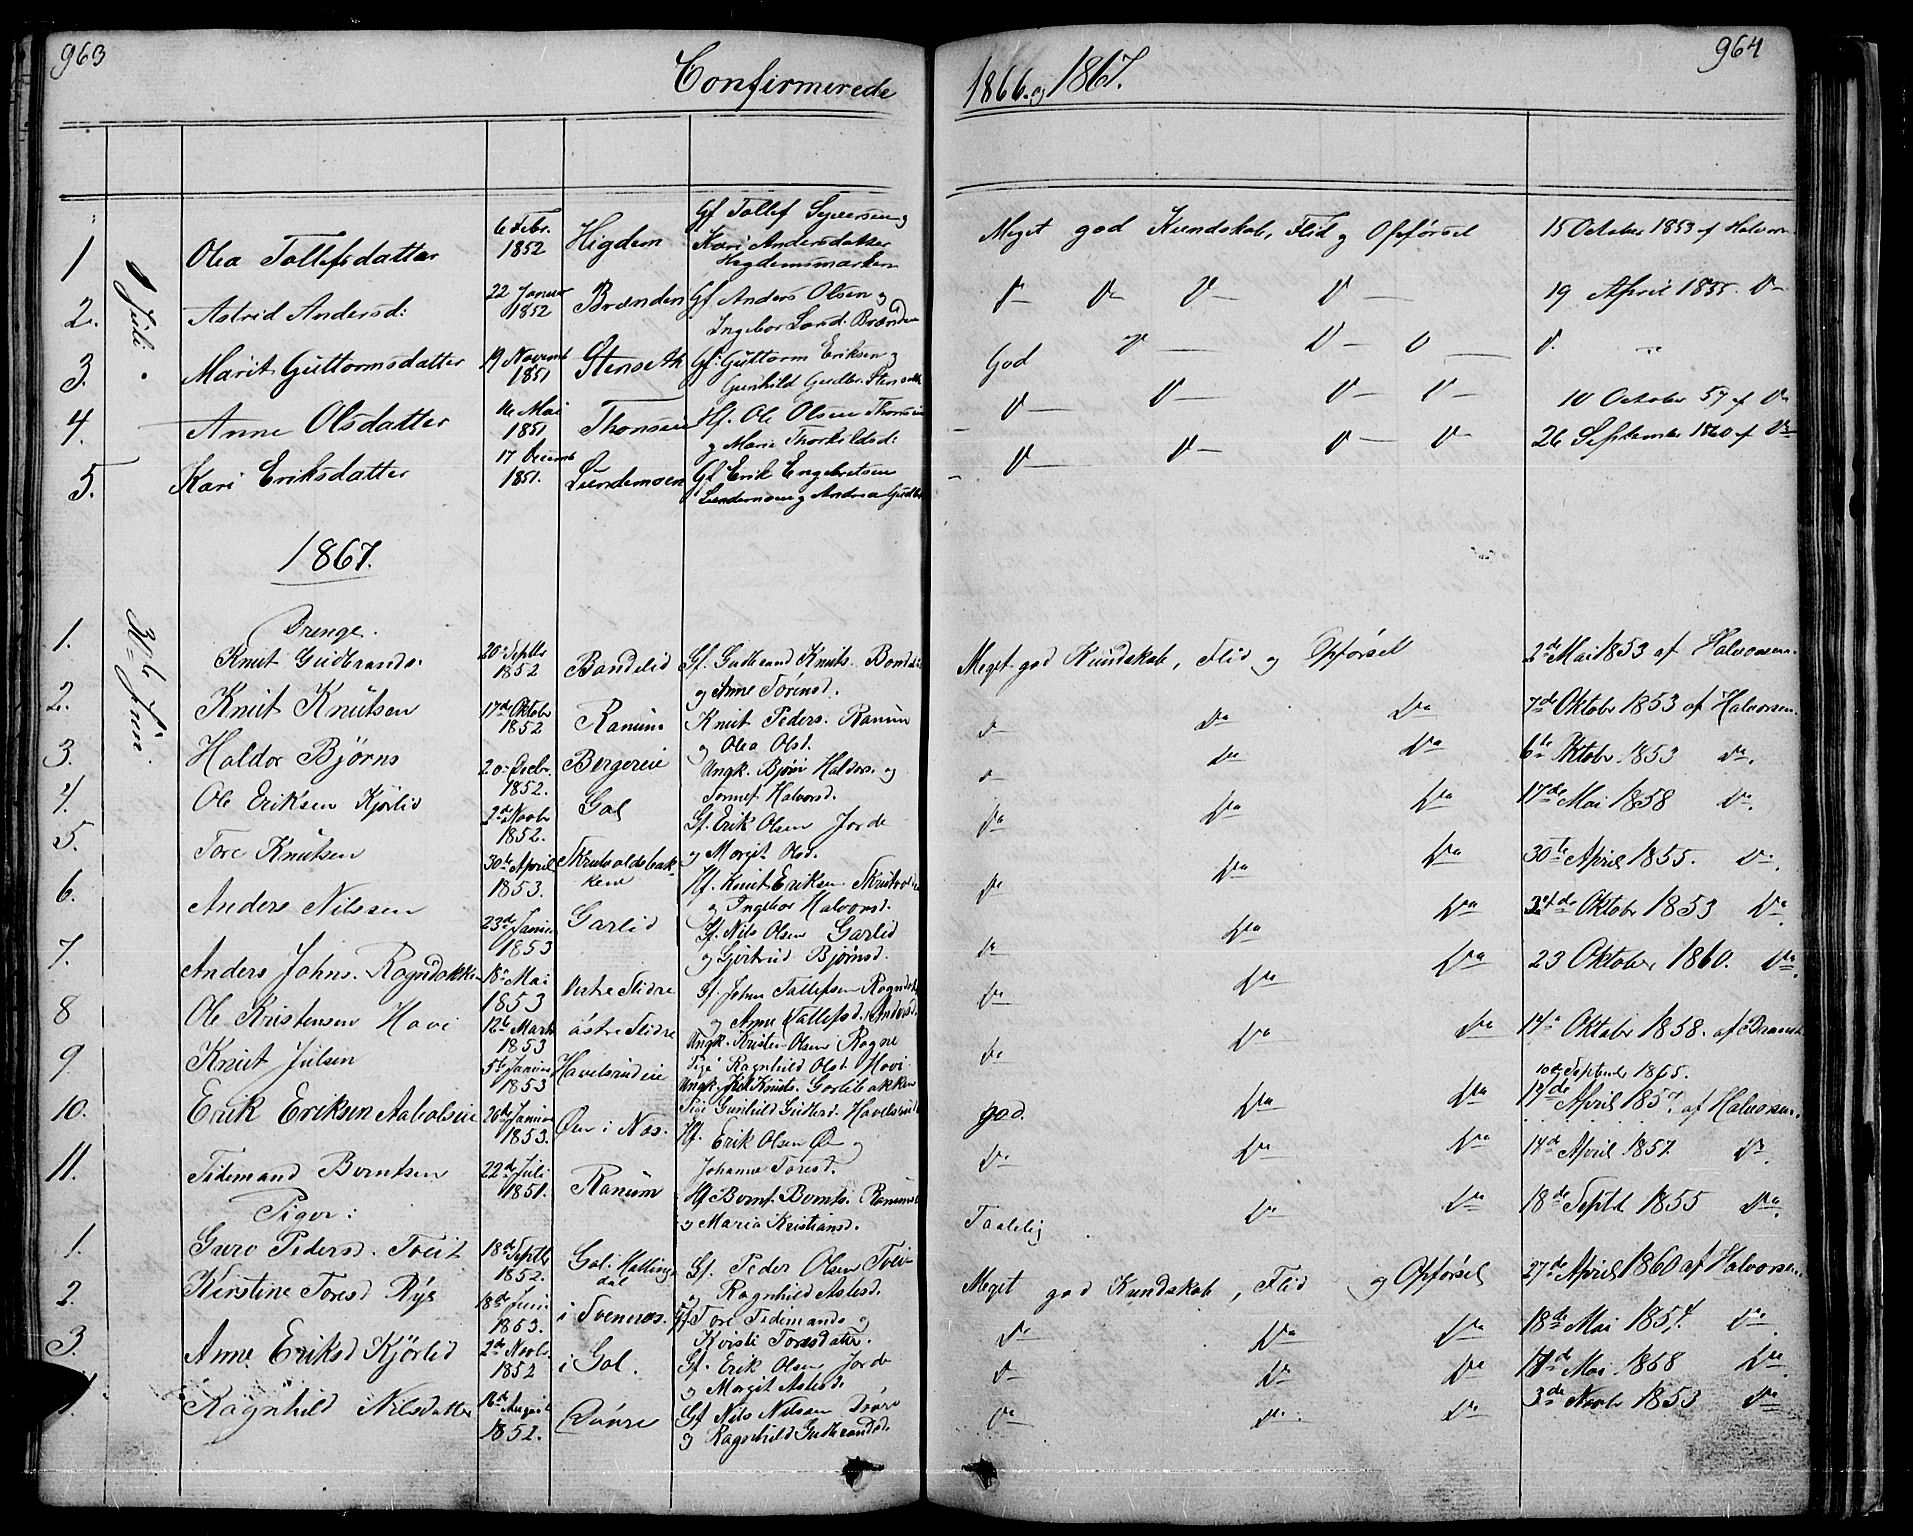 963
Confirmerede
1866 og 1867.
964
1 Olea Tollefsdatter 6 Febr. 1852 Higdem Gf Tollef Syversen og Kari Andersdatter Higdemsmarken Meget god Kundskab, Flid og Opførsel 15 October 1853 af Halvorsen
Juli
2. Astrid Andersd: 22 Januar 1852 Brænden Gf Anders Olsen og Ingebor Brænden D D D D 19 April 1855. D
3. Marit Guttormsdatter 19 Novemb 1851 Stenseth Gf. Guttorm Eriksen og Gunhild Gudbr. Stenseth God D D D D. "
4. Anne Olsdatter 16 Mai 1851 Thonsen Hf. Ole Olsen Thonsen og Marie Thorkildsd: D D D D 10 October 57 af D
5. Kari Eriksdatter 17 Decemb 1851. Lundemoen Gf Erik Engebretsen Lundemoen og Andrea Gudbr D D D D 26 September 1860 af D
1867.
30te Juni
Drenge.
1. Knut Gudbrands. 20 Septbr 1852 Bandelid Gf. Gudbrand Knuts. og Anne Torensd. Meget god Kundskab, Flid og Opførsel 2de Mai 1853 af Halvorsen.
2. Knut Knutsen 17de Oktobr 1852 Ranum Knut Peders. Ranum og Olea Olsd. D Da Da 7de Oktobr 1853 af Halvorsen.
3. Haldor Bjørns 20 Decbr. 1852. Bergereie Ungk. Bjørn Haldors. og Halvorsd. D Da Da 6te Oktobr 1853 Da.
4. Ole Eriksen Kjørlid 2de Novbr 1852. Gol Gf. Erik Olsen Jorde og Margit Olsd. Da Da Da 17de Mai 1858 Da.
5. Tore Knutsen 30te April 1853. Skrutvoldsbakken Hf. Knut Eriksen og Ingebor Halvorsd. Da Da Da 30te April 1855. Da.
6. Anders Nilssen 23de Januar 1853 Garlid Gf. Nils Olsen Garlid og Gjertrud Bjørnsd. Da Da Da 24de Oktobr 1853 Da
7. Anders Johns. Rogndokken 18 Mai 1853 Vestre Slidre Gf. John Tollefsen og Anne Andersd. Da Da Da 23 Oktober 1860. Da.
8 Ole Kristensen Hovi 12te Marts 1853 Østre Slidre Ungk. Kristen Olsen Rogne Pige Ragnhild Olsd Hovi Da Da Da 14 Oktober 1858. af
9 Knut Julsen 5te Januar 1853 Havelsrudeie Ungk. Knuts. Garlibakken Pige Gunhild Gudbrd. god. Da Da 10de September 1865. 17de April 1857. af Halvorsen.
10. Erik Eriksen 26de Januar 1853. Øen i Næs. Hf. Erik Olsen Øen og Johanne Toresd. Da Da Da 14de April 1857. Da.
11. Tidemand Berntsen 22de Juli 1851. Ranum Hf Bernt Bernts. og Maria Kristiansd. Taalelig Da Da 18de Septbr 1855 Da.
Piger:
1. Guro Pedersd. Tveit 18de Septbr 1852. Gol. Hallingdal Gf. Peder Olsen og Ragnhild Aslesd. Meget god Kundskab, Flid og Opførsel 27de April 1860 af Halvorsen.
2. Kirstine Toresd Rye 18de Juni 1853. i Tvennæs. Gf Tore Tidemands og Kirsti Toresdatter. Da Da Da 18de Mai 1854. Da
3. Anne Eriksd Kjørlid 2de Novb. 1852 i Gol. Gf. Erik Olsen Jorde og Margit Aslesd. D Da Da 17de Mai 1858 Da
Ragnhild Nilsdatter 16de August 1852. Gf Nils Nilsen og Ragnhild Gudbrandsd. Da Da Da 3de Novbr 1853 Da